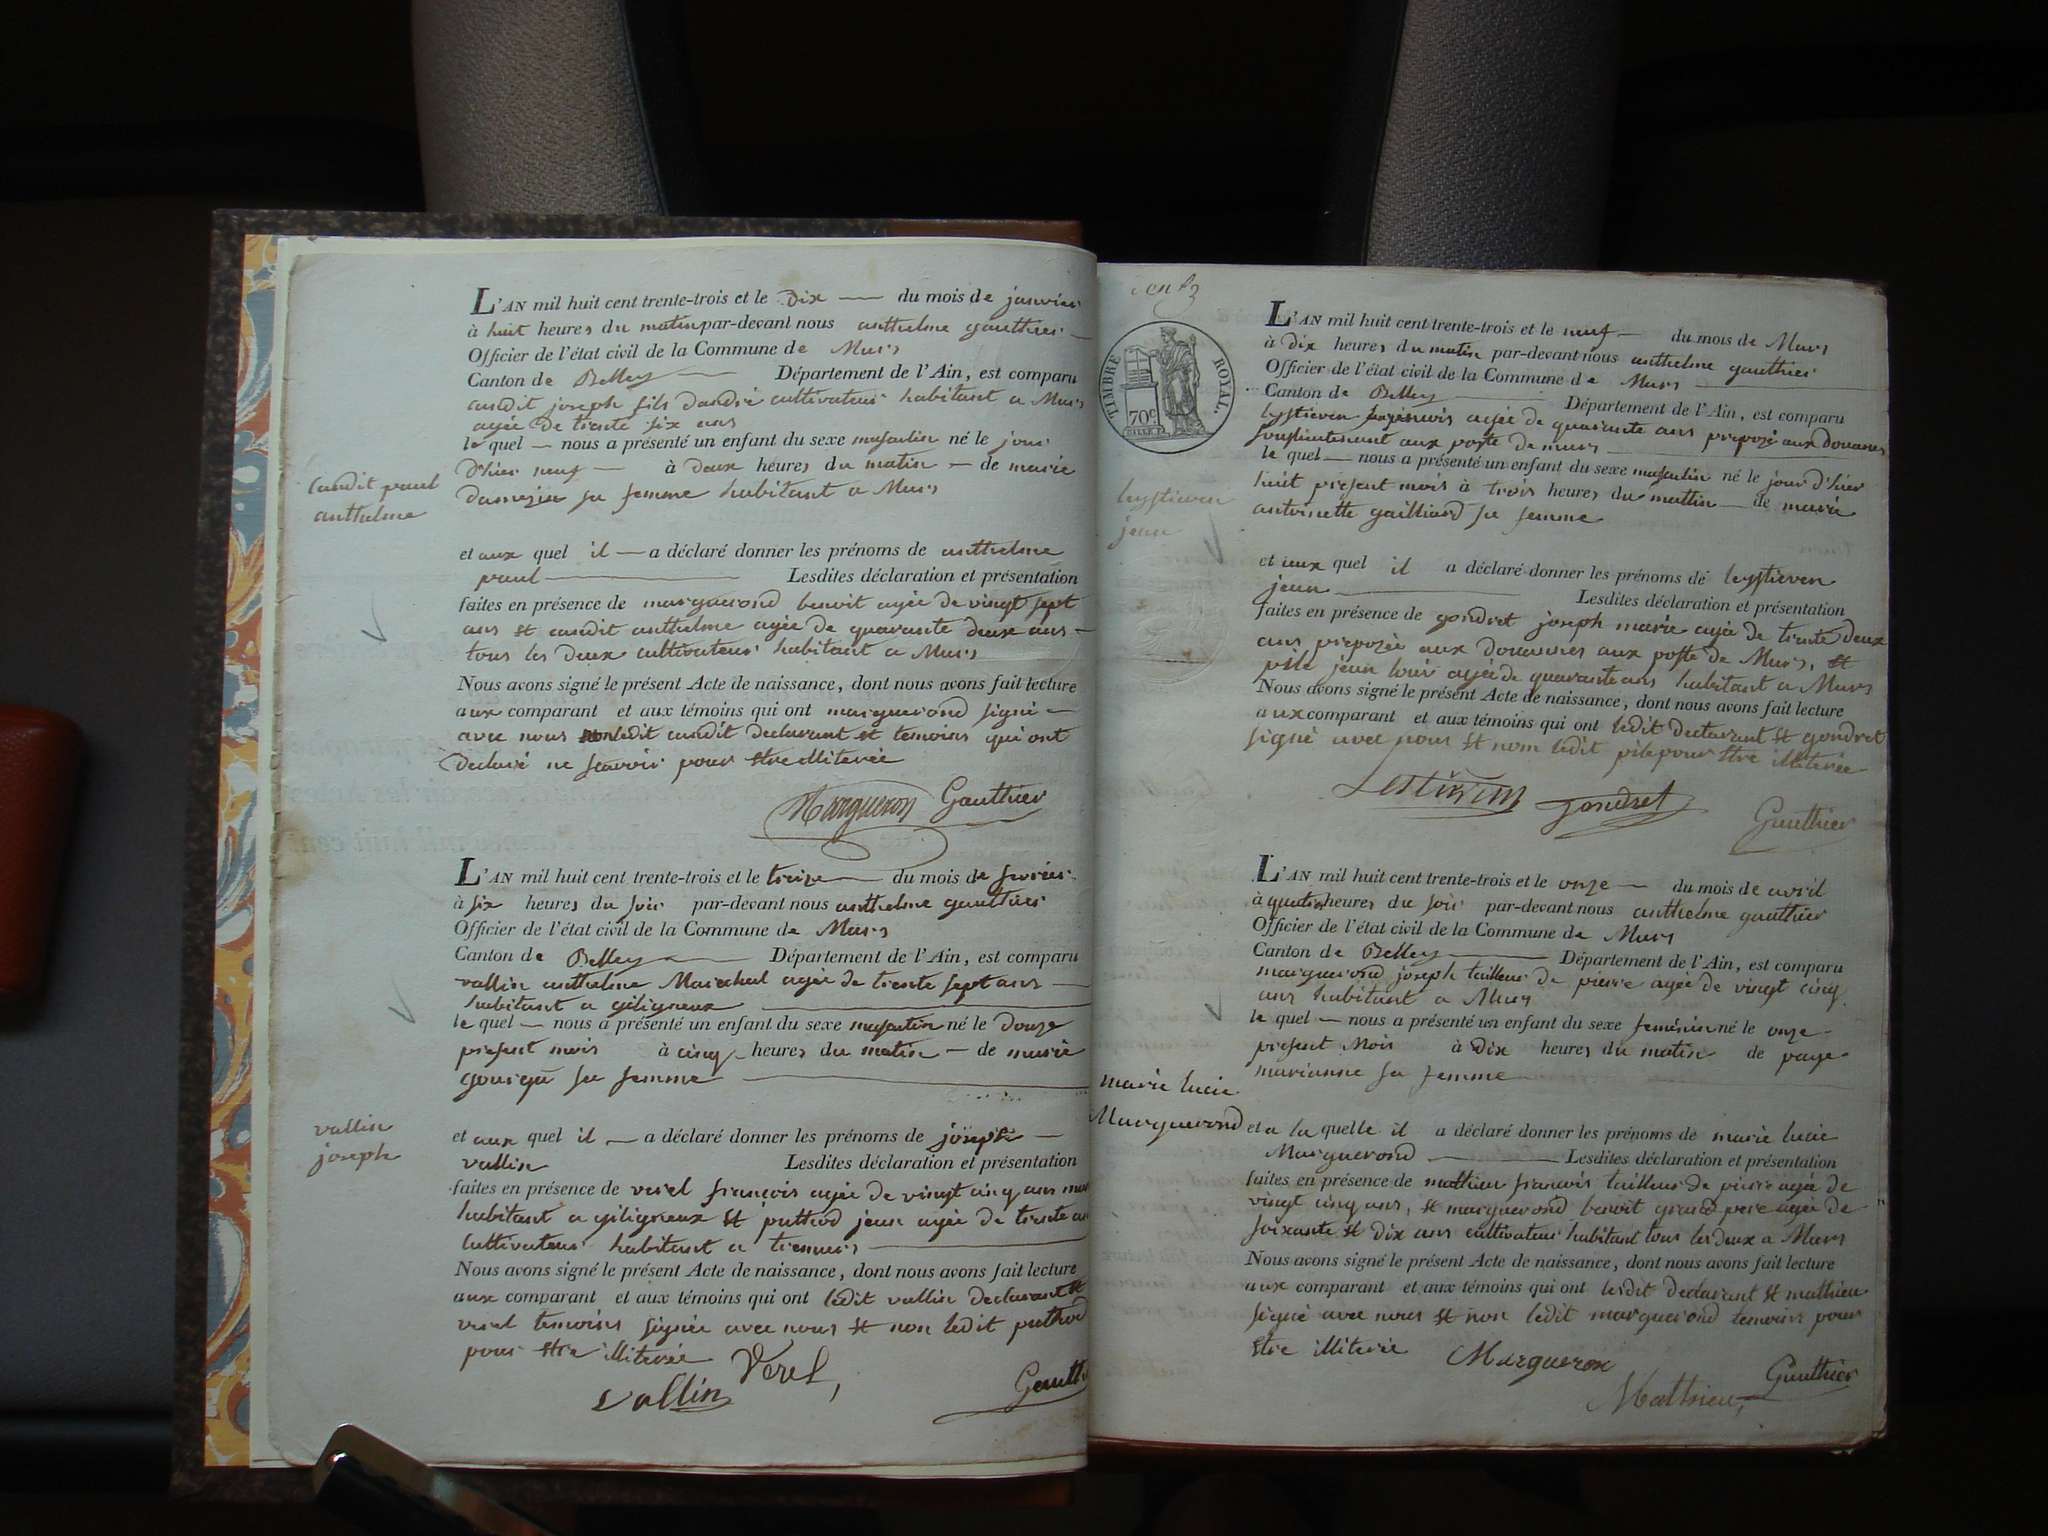 L'AN mil huit cent trente-trois et le dix du mois de janvier
à huit heures du matin par-devant nous anthelme gauthier
Officier de l'état civil de la Commune de Murs
Canton de Belley Département de l'Ain, est comparu
candit joseph fils dandré cultivateur habitant a Murs
agée de trente six ans
le quel nous a présenté un enfant du sexe masculin né le jour
d'hier neuf à deux heures du matin de marie
sa femme habitant a Murs
Candit paul
anthelme
et aux quel il a déclaré donner les prénoms de anthelme
paul Lesdites déclaration et présentation
faites en présence de marguerond benoit agée de vingt sept
ans et candit anthelme agée de quarante deux ans
tous les deux cultivateur habitant a Murs
Nous avons signé le présent Acte de naissance, dont nous avons fait lecture
aux comparant et aux témoins qui ont marguerond signé
avec nous non ledit candit declarant et temoins qui ont
declaré ne scavoir pour etre illiterée
Margueron Gauthier
L'AN mil huit cent trente-trois et le treize du mois de fevrier
à six heures du soir par-devant nous anthelme gauthier
Officier de l'état civil de la Commune de Murs
Canton de Belley Département de l'Ain, est comparu
vallin anthelme Marechal agée de trente sept ans
habitant a giligneux
le quel nous a présenté un enfant du sexe masculin né le douze
present mois à cinq heures du matin de marie
sa femme
vallin
joseph
et aux quel il a déclaré donner les prénoms de joseph
vallin Lesdites déclaration et présentation
faites en présence de verel francois agée de vingt cinq ans
habitant a giligneux et puthod jean agée de trente
cultivateur habitant a
Nous avons signé le présent Acte de naissance, dont nous avons fait lecture
aux comparant et aux témoins qui ont ledit vallin declarant et
verel temoins signée avec nous et non ledit puthod
pour etre illiterée Verel,
vallin Gauth
TIMBRE ROYAL.
70c
leystieven
jean
L'AN mil huit cent trente-trois et le neuf du mois de Mars
à dix heures du matin par-devant nous anthelme gauthier
Officier de l'état civil de la Commune de Murs
Canton de Belley Département de l'Ain, est comparu
leystieven agée de quarante ans preposé aux douanes
aux poste de murs
le quel nous a présenté un enfant du sexe masculin né le jour d'hier
huit present mois à trois heures du mattin de marie
antoinette gailliard sa femme
et aux quel il a déclaré donner les prénoms de leystieven
jean Lesdites déclaration et présentation
faites en présence de gondret joseph marie agée de trente deux
ans preposée aux douannes aux poste de Murs, et
pile jean louis agée de quarante ans habitant a Murs
Nous avons signé le présent Acte de naissance, dont nous avons fait lecture
aux comparant et aux témoins qui ont ledit declarant et gondret
signé avec nous et nom ledit pile pour etre illiterée
gondret
Gauthier
L'AN mil huit cent trente-trois et le onze du mois de avril
à quatre heures du soir par-devant nous anthelme gauthier
Officier de l'état civil de la Commune de Murs
Canton de Belley Département de l'Ain, est comparu
marguerond joseph tailleur de pierre agée de vingt cinq
ans habitant a Murs
le quel nous a présenté un enfant du sexe feminin né le onze
present Mois à dix heures du matin de paye
marianne sa femme
marie lucie
Marguerond
et a la quelle il a déclaré donner les prénoms de marie lucie
Marguerond Lesdites déclaration et présentation
faites en présence de mathieu francois tailleur de pierre agée de
vingt cinq ans, et marguerond benoit grand pere agée de
soixante et dix ans cultivateur habitant tous les deux a Murs
Nous avons signé le présent Acte de naissance, dont nous avons fait lecture
aux comparant et aux témoins qui ont lesdit declarant et mathieu
signé avec nous et non ledit marguerond temoins pour
etre illiterée Margueron
Gauthier
Mathieu,